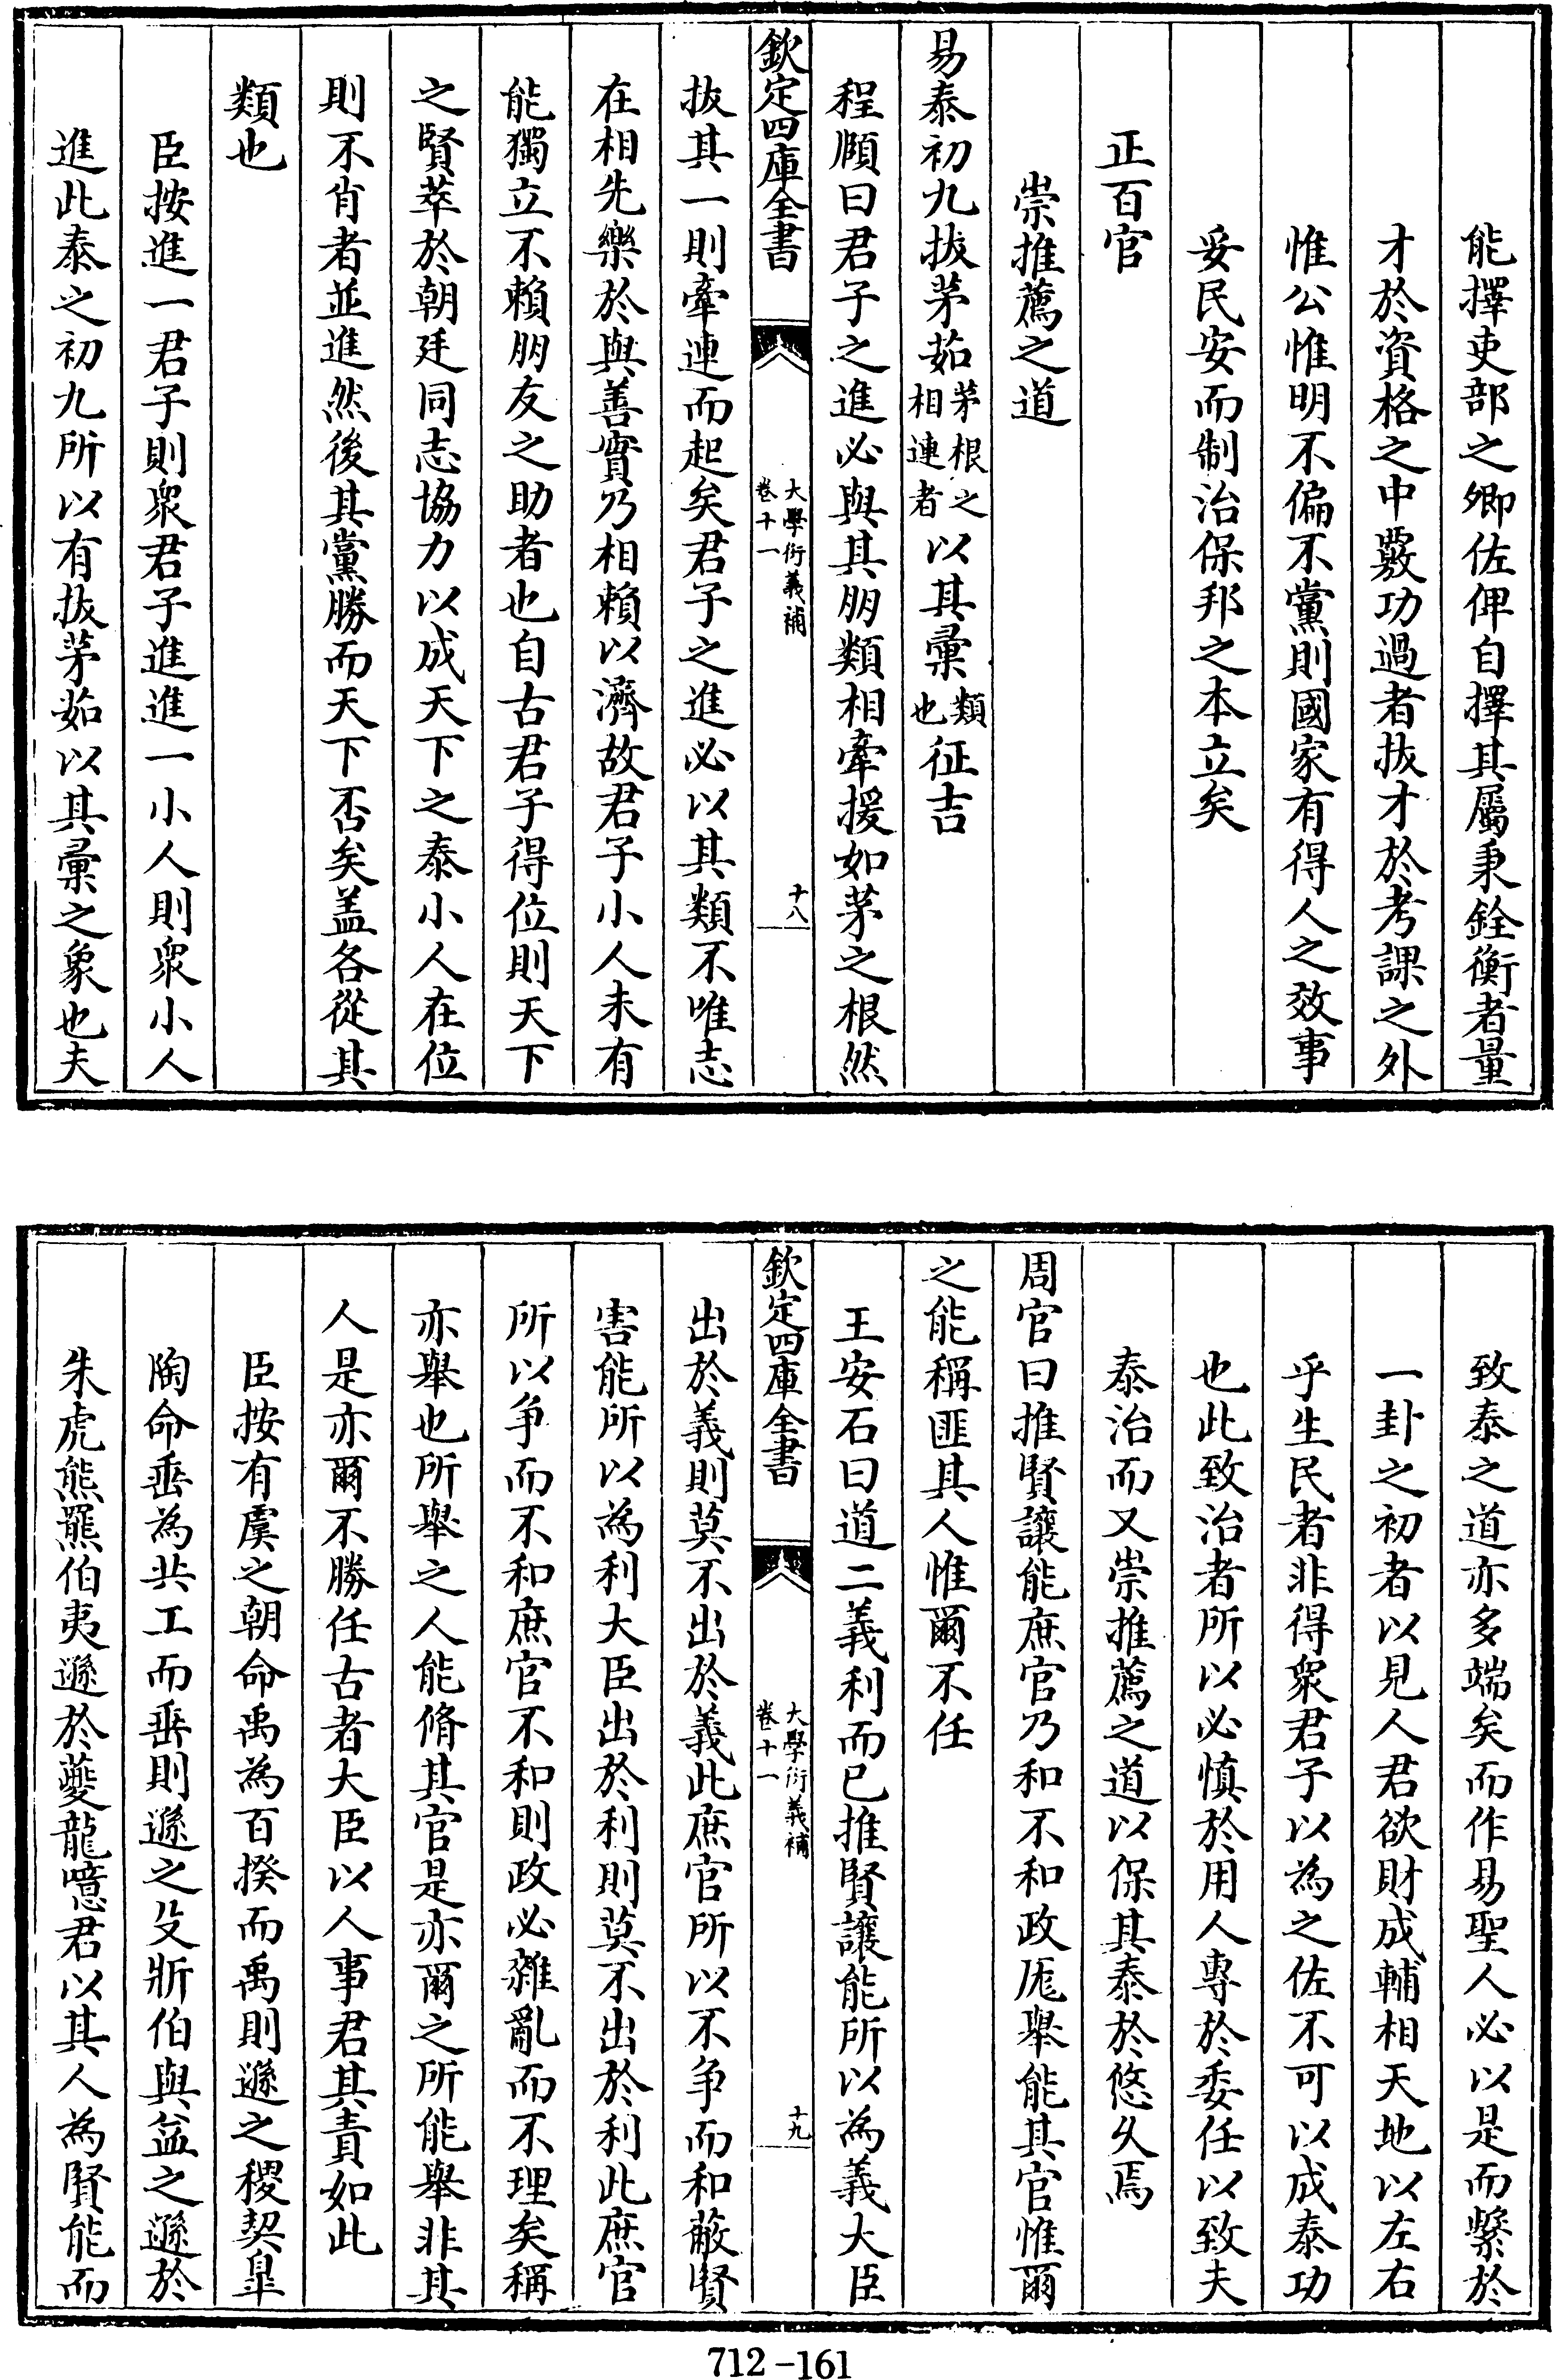 能擇吏部之卿佐俾自擇其屬秉銓衡者量
才於資格之中覈功過者拔才於考課之外
惟公惟明不偏不黨則國家有得人之效事
妥民安而制治保邦之本立矣
正百官
崇推薦之道
易泰初九拔茅茹茅根之相連者以其彙類也征吉
程頤曰君子之進必與其朋類相牽援如茅之根然
欽定四庫全書
大學衍義補
卷十一
十八
拔其一則牽連而起矣君子之進必以其類不唯志
在相先樂於與善實乃相賴以濟故君子小人未有
能獨立不賴朋友之助者也自古君子得位則天下
之賢萃於朝廷同志協力以成天下之泰小人在位
則不肖者並進然後其黨勝而天下否矣盖各從其
類也
臣按進一君子則衆君子進進一小人則衆小人
進此泰之初九所以有拔茅茹以其彙之象也夫
致泰之道亦多端矣而作易聖人必以是而繫於
一卦之初者以見人君欲財成輔相天地以左右
乎生民者非得衆君子以為之佐不可以成泰功
也此致治者所以必慎於用人專於委任以致夫
泰治而又崇推薦之道以保其泰於悠久焉
周官曰推賢讓能庶官乃和不和政厖舉能其官惟爾
之能稱匪其人惟爾不任
王安石曰道二義利而已推賢讓能所以為義大臣
欽定四庫全書
大學衍義補
卷十一
十九
出於義則莫不出於義此庶官所以不爭而和蔽賢
害能所以為利大臣出於利則莫不出於利此庶官
所以爭而不和庶官不和則政必雜亂而不理矣稱
亦舉也所舉之人能脩其官是亦爾之所能舉非其
人是亦爾不勝任古者大臣以人事君其責如此
臣按有虞之朝命禹為百揆而禹則遜之稷契臯
陶命垂為共工而垂則遜之殳斨伯與益之遜於
朱虎熊羆伯夷遜於夔龍噫君以其人為賢能而
712-161